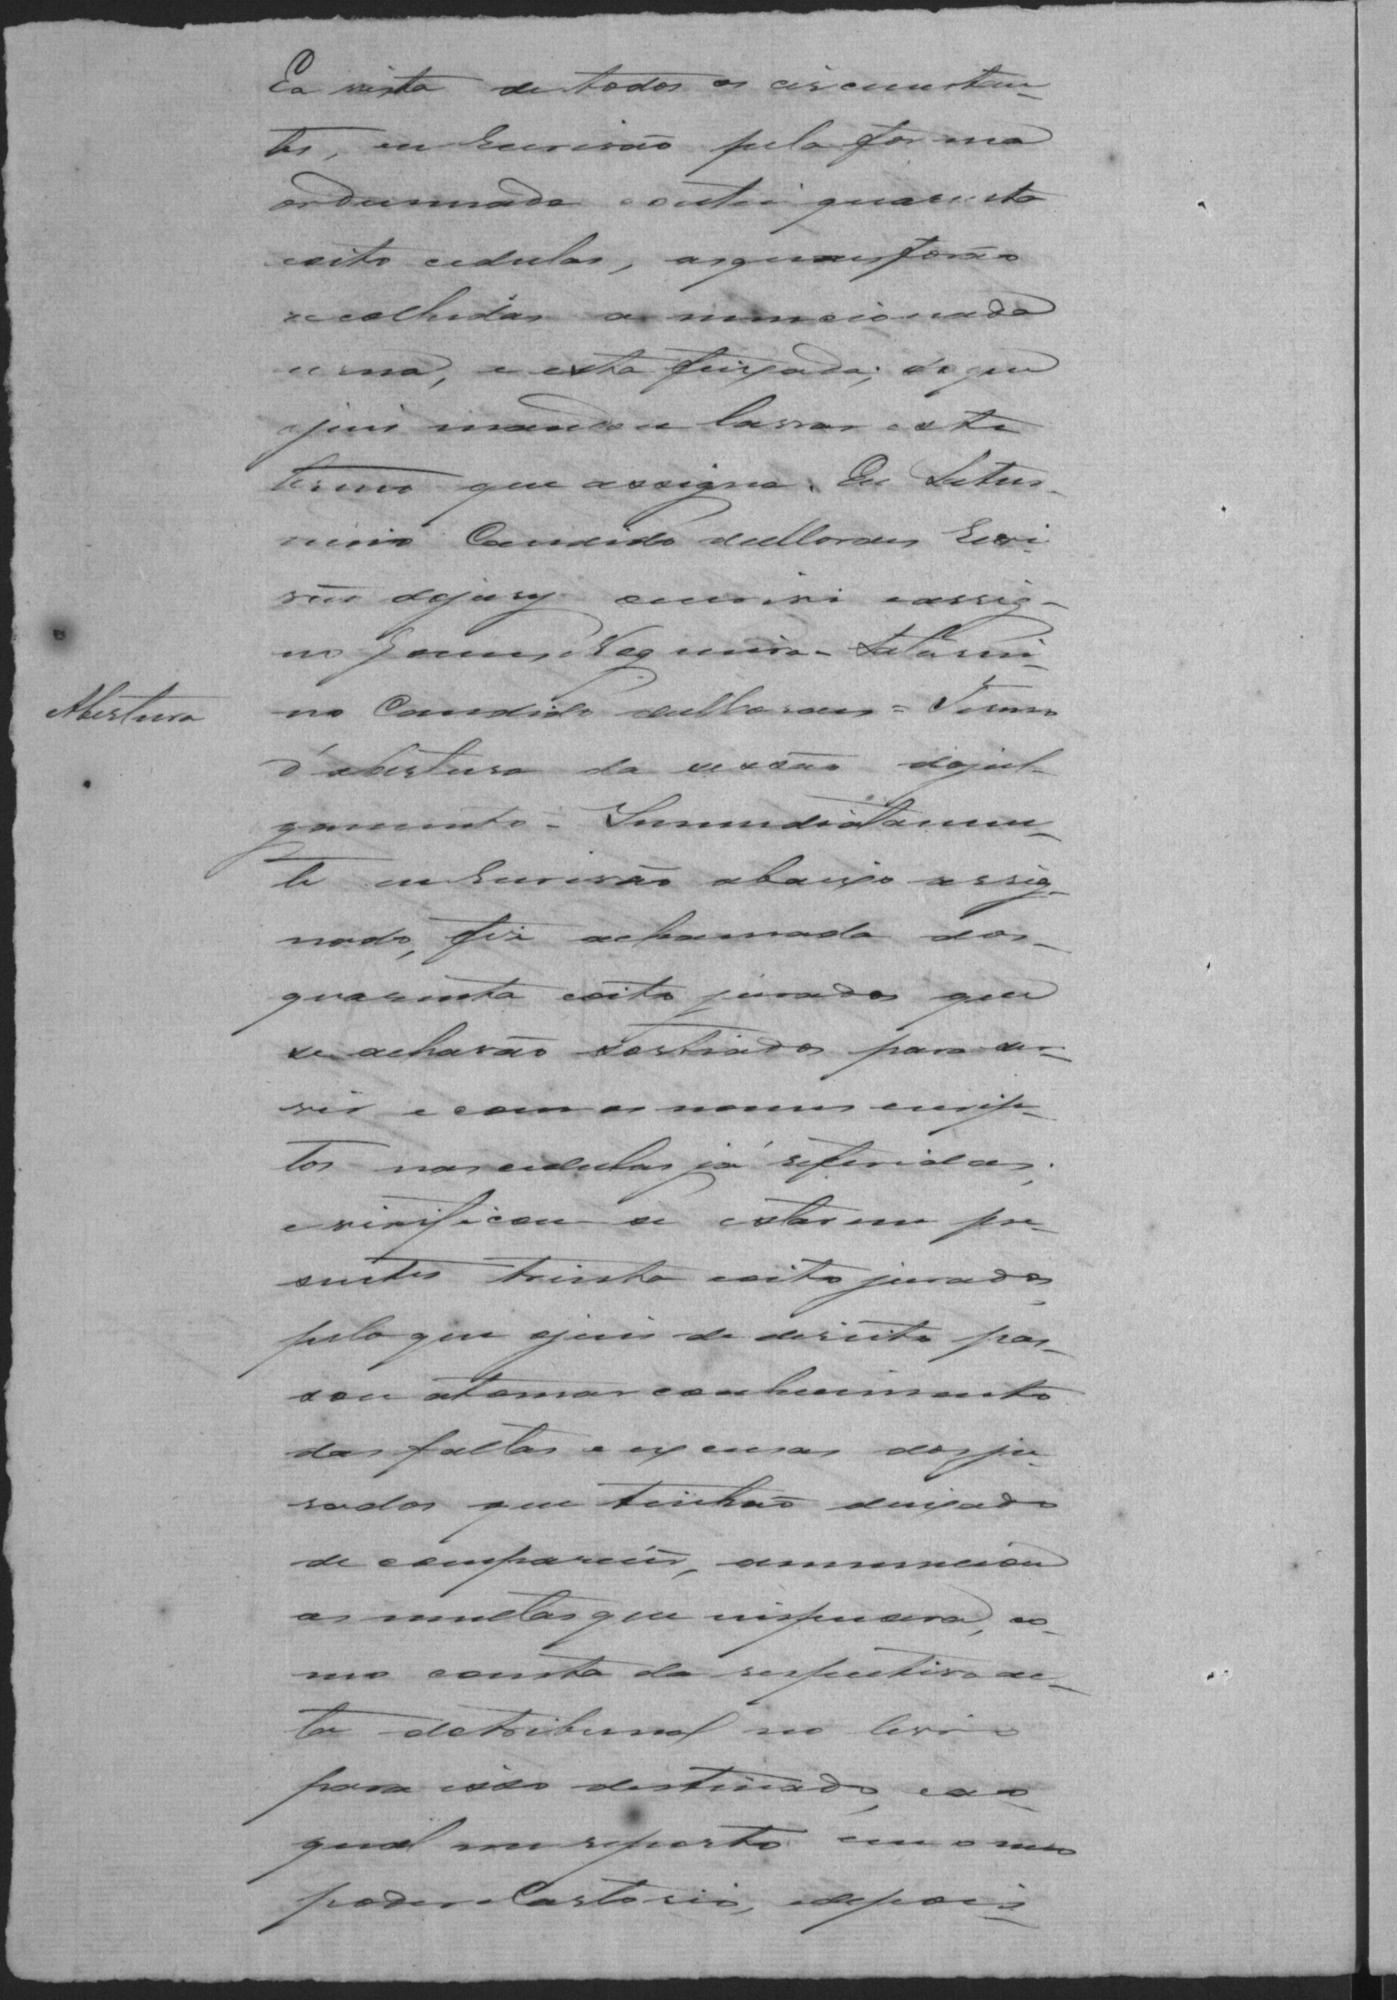 E a vista de todos os circunstan-
tes, eu Escrivão pela forma
ordennada contei quarenta
eoito cedulas, asquaes forão
recolhidas a mencionada
urna, e esta feixada; do que
ojuis mandou lavrar este
termo que assigna. Eu Satur-
nino Candido deMoraes Escri-
vão dojury escrivi eassig-
no Gomes Nogueira - Saturni-
no Candido deMoraes = Termo
Abertura
d'abertura da sessão dojul-
gamento - Immediatamen-
te eu Escrivão abaixo assig-
nado, fiz achamada dos
quarenta eoito jurados que
se acharão sortiados para ser-
vir e com os nomes escrip-
tos nas cedulas já referidas;
e virificou se estarem pre-
sentes trinta eoito jurados,
pelo que ojuis de direito pas-
sou atomar conhecimento
das faltas e excusas dos ju-
rados que tinhão deixado
de comparecer, annunciou
as multas que impusera, co-
mo consta da respectiva ac-
ta dotribunal no livro
para isso destinado, eao
qual me reporto em o meo
poder eCartorio, edepois